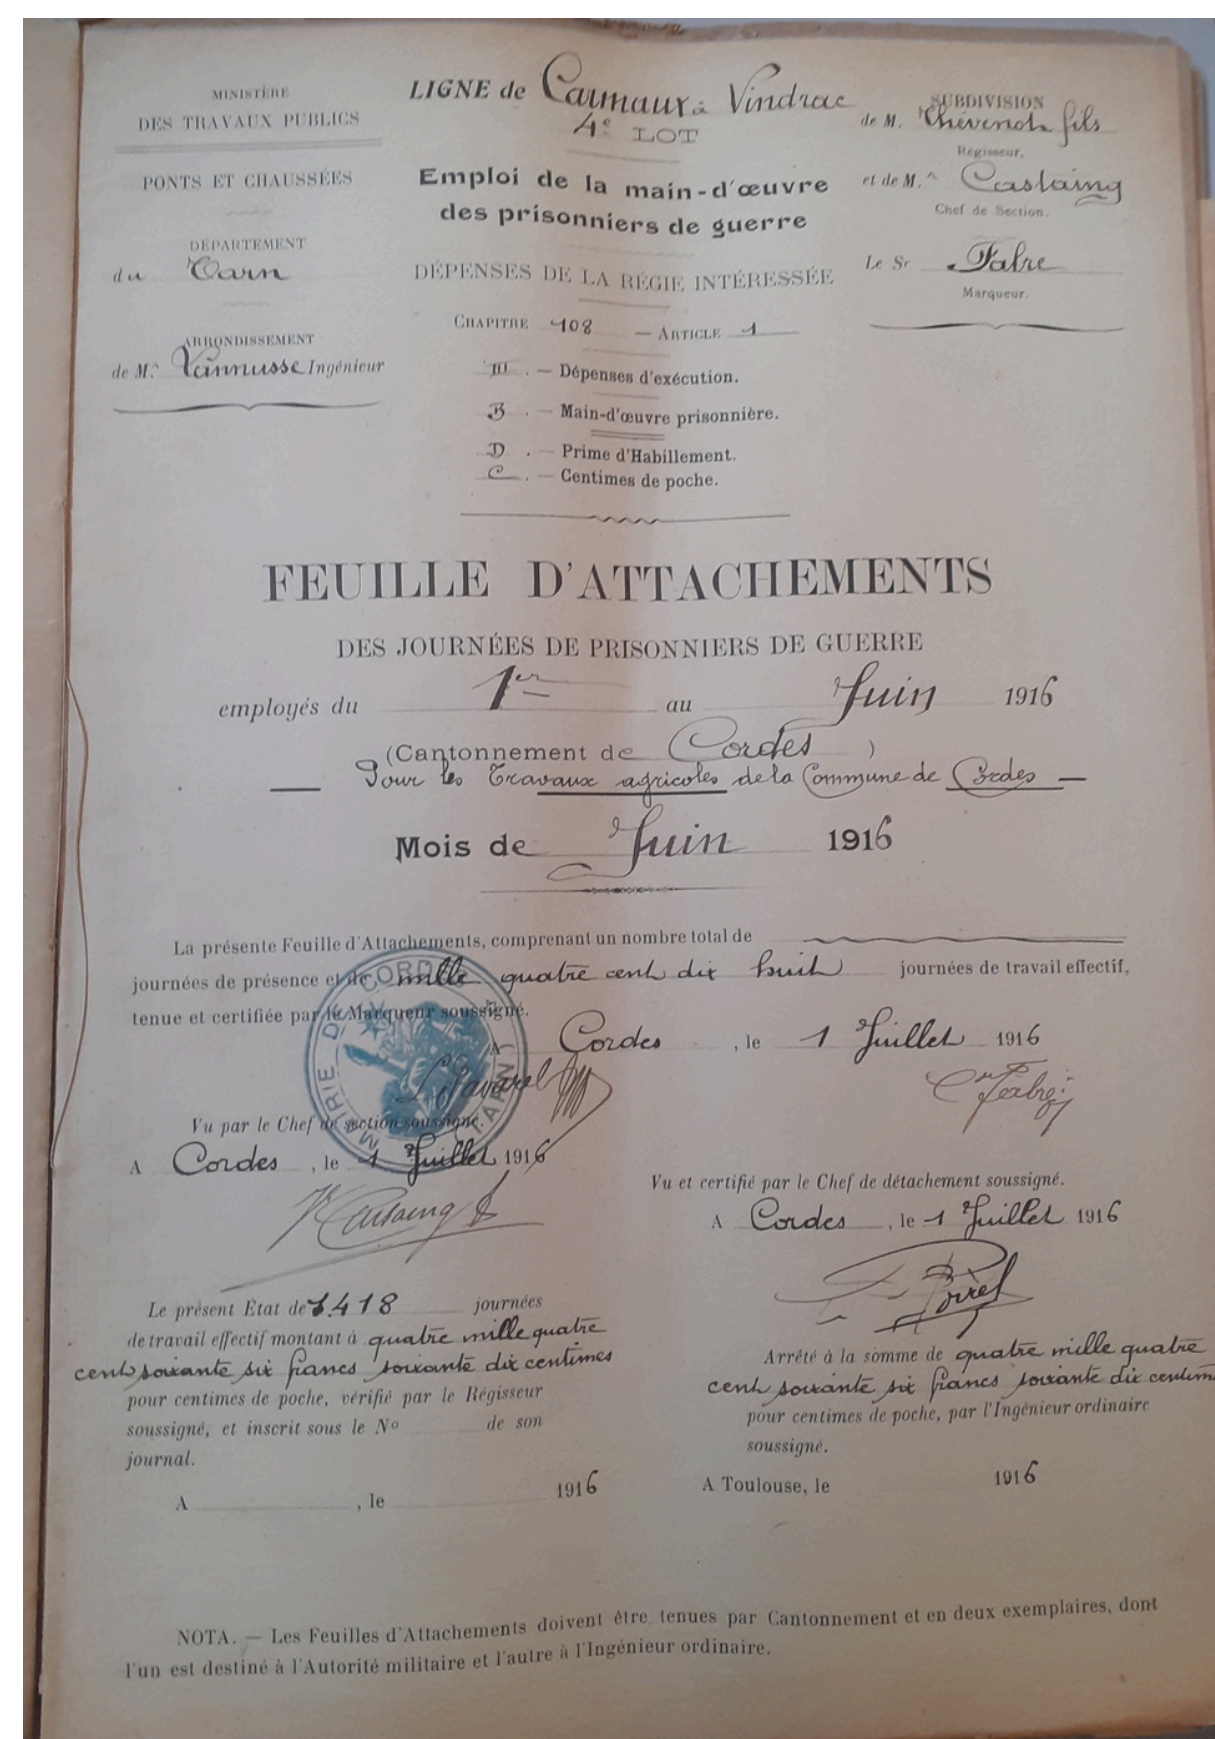 MINISTÈRE
DES TRAVAUX PUBLICS
PONTS ET CHAUSSÉES
DÉPARTEMENT
du Tarn
ARRONDISSEMENT
de Mr. Vannusse Ingénieur
LIGNE de Carmaux à Vindrac
4e LOT
Emploi de la main-d'œuvre
des prisonniers de guerre
DÉPENSES DE LA RÉGIE INTÉRESSÉE
CHAPITRE 108 — ARTICLE 1
III. — Dépenses d'exécution.
B. — Main-d'œuvre prisonnière.
D. — Prime d'Habillement.
C. — Centimes de poche.
SUBDIVISION
de M. Thévenot fils
Régisseur,
et de M. Castaing
Chef de Section.
Le Sr Fabre
Marqueur.
FEUILLE D'ATTACHEMENTS
DES JOURNÉES DE PRISONNIERS DE GUERRE
employés du 1er au Juin 1916
(Cantonnement de Cordes)
Pour les Travaux agricoles de la Commune de Cordes
Mois de Juin 1916
La présente Feuille d'Attachements, comprenant un nombre total de
journées de présence et de mille quatre cent dix huit journées de travail effectif,
tenue et certifiée par le Marqueur soussigné.
A Cordes, le 1 Juillet 1916
Fabre
MAIRIE DE CORDES (TARN)
Vu par le Chef de section soussigné.
A Cordes, le 1 Juillet 1916
Castaing
Vu et certifié par le Chef de détachement soussigné.
A Cordes, le 1 Juillet 1916
Le présent État de 1.418 journées
de travail effectif montant à quatre mille quatre
cent soixante six francs soixante dix centimes
pour centimes de poche, vérifié par le Régisseur
soussigné, et inscrit sous le No de son
journal.
A , le 1916
Arrêté à la somme de quatre mille quatre
cent soixante six francs soixante dix centim
pour centimes de poche, par l'Ingénieur ordinaire
soussigné.
A Toulouse, le 1916
NOTA. — Les Feuilles d'Attachements doivent être tenues par Cantonnement et en deux exemplaires, dont
l'un est destiné à l'Autorité militaire et l'autre à l'Ingénieur ordinaire.